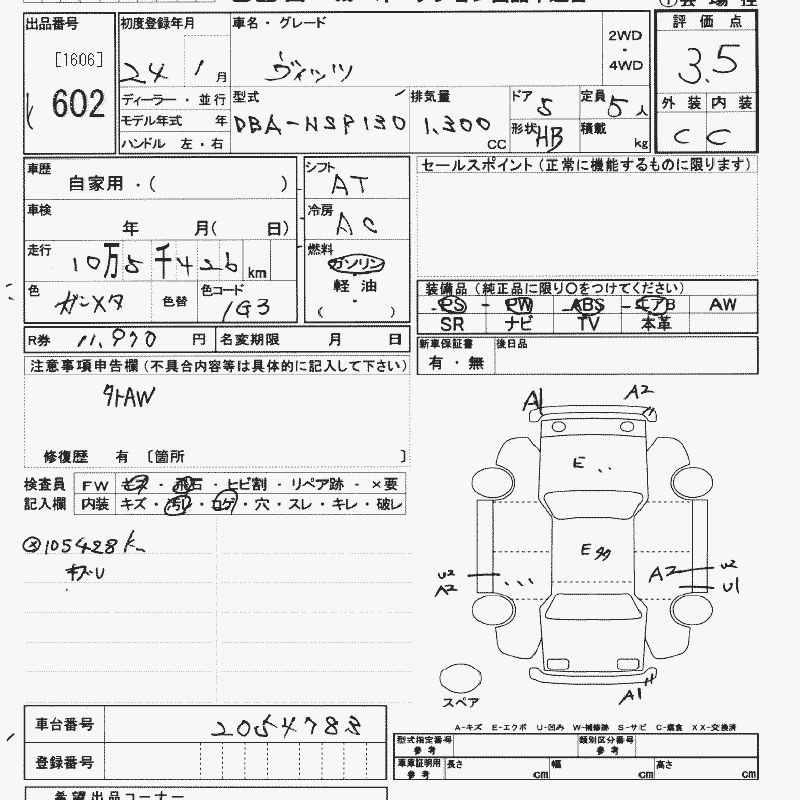 出品番号
[1606]
602
初度登録年月
24 1 月
車名・グレード
ヴィッツ
2WD
・
4WD
評価点
3.5
外装 内装
C C
ディーラー・並行
モデル年式 年
ハンドル 左・右
型式
DBA-NSP130
排気量
1,300
CC
ドア 5
定員 5 人
形状 HB
積載 kg
車歴
自家用・( )
車検
年 月( 日)
走行
10万5千426 km
色
ガンメタ
色替
色コード
1G3
シフト
AT
冷房
AC
燃料
ガソリン
・
軽油
・
( )
セールスポイント(正常に機能するものに限ります)
装備品(純正品に限り○をつけてください)
PS PW ABS エアB AW
SR ナビ TV 本革
R券 11,970 円 名変期限 月 日
新車保証書
有・無
後日品
注意事項申告欄(不具合内容等は具体的に記入して下さい)
外AW
修復歴 有 〔箇所 〕
検査員
記入欄
FW キズ・飛石・ヒビ割・リペア跡・×要
内装 キズ・汚レ・コゲ・穴・スレ・キレ・破レ
105428 K
キズU
A1
A2
E
E
U2
A2
A2
U2
U1
A1
スペア
車台番号 2054783
登録番号
A-キズ E-エクボ U-凹み W-補修跡 S-サビ C-腐食 XX-交換済
型式指定番号
参考
類別区分番号
参考
車庫証明用
参考
長さ cm
幅 cm
高さ cm
希望出品コーナー